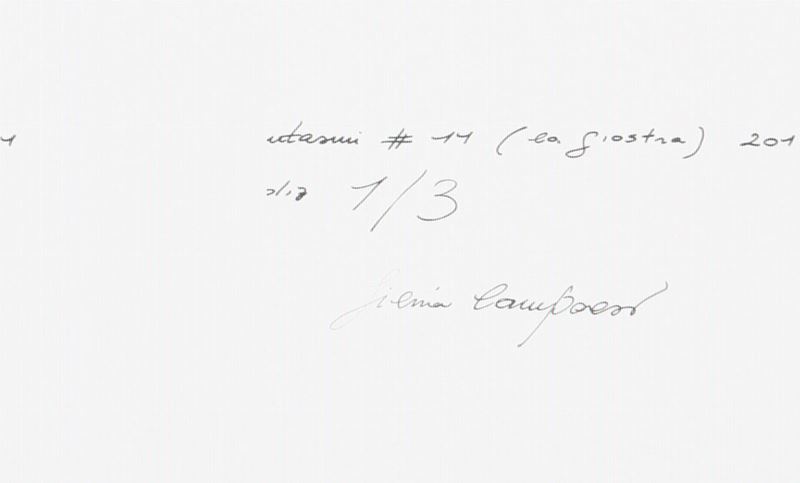 utasmi # 11 (la giostra) 201
1/3
Silvia Camporesi